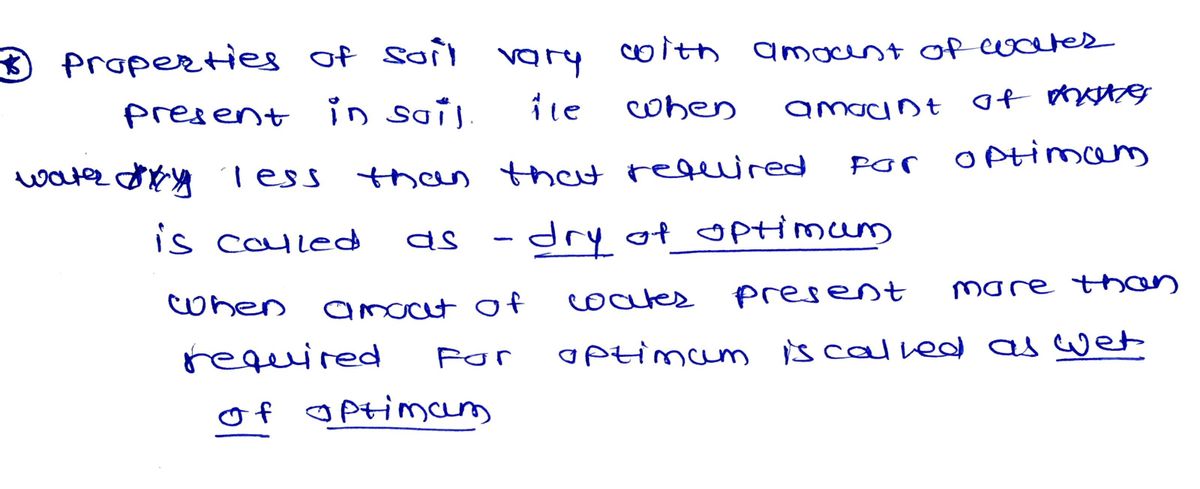 * properties of soil vary with amount of water
present in soil. i|e when amount of
water less than that required for optimum
is called as - dry of optimum
when amout of water present more than
required for optimum is called as wet
of optimum